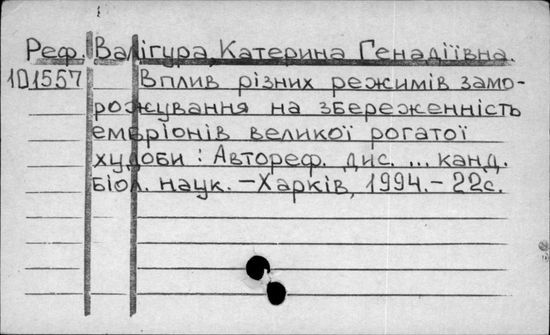 Реф. Валігура, Катерина Генадіївна.
1D1557 Вплив різних режимів замо-
рожування на збереженність
ембріонів великої рогатої
худоби : Автореф. дис. ... канд.
біол. наук. –Харків, 1994.– 22с.